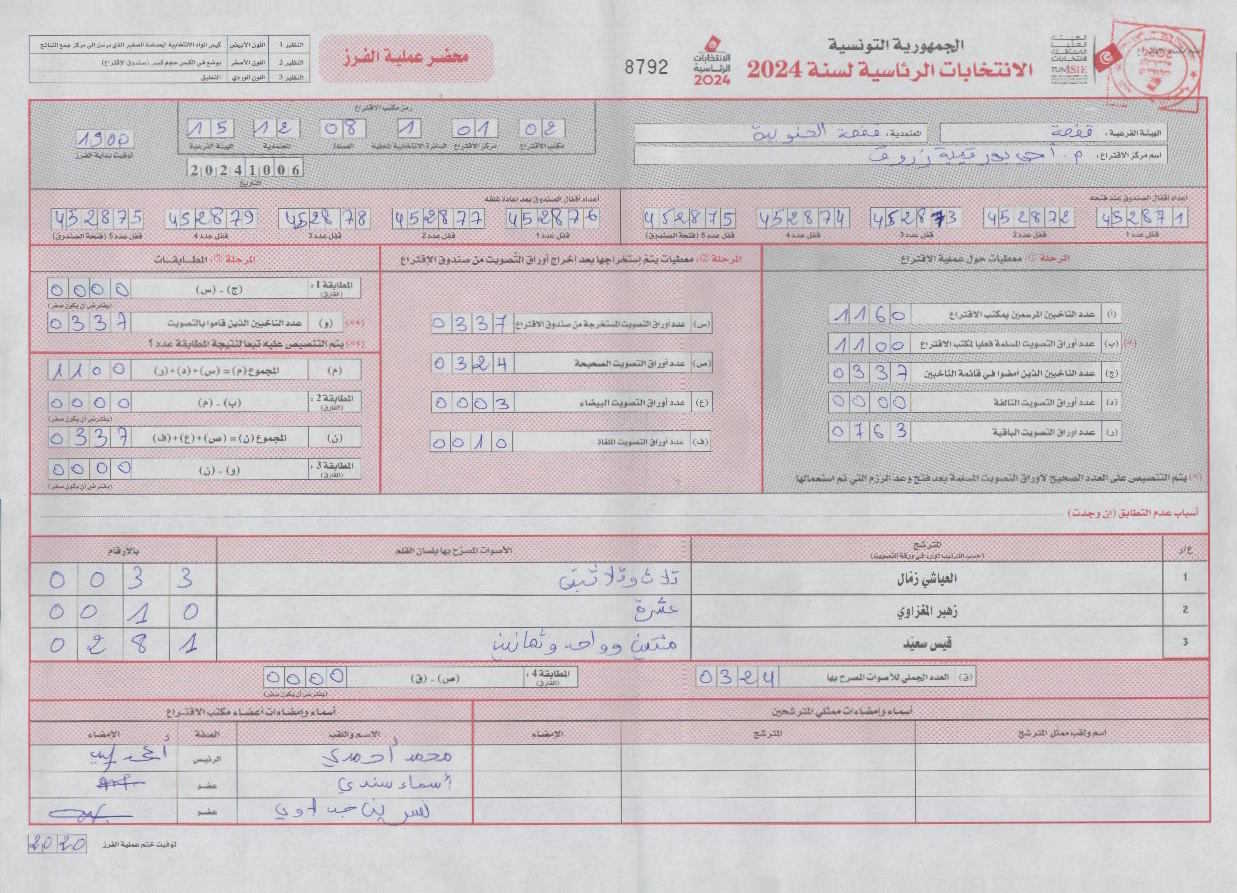 الجمهورية التونسية
الانتخابات الرئاسية لسنة 2024
الانتخابات
الرئاسية
2024
8792
محضر عملية الفرز
النظير 1 اللون الأبيض
النظير 2 اللون الأصفر
النظير 3 اللون الوردي التعليق
الهيئة الفرعية: قفصة
المعتمدية: قفصة الجنوبية
اسم مركز الاقتراع:
رمز مكتب الاقتراع
02 01 1 08 12 15
مكتب الاقتراع مركز الاقتراع الدائرة الانتخابية المحلية العمادة المعتمدية الهيئة الفرعية
20241006
التاريخ
1900
توقيت بداية الفرز
أعداد أقفال الصندوق عند فتحه
452871 452872 452873 452874 452875
قفل عدد 1 قفل عدد 2 قفل عدد 3 قفل عدد 4 قفل عدد 5 (فتحة الصندوق)
أعداد أقفال الصندوق بعد إعادة غلقه
452876 452877 452878 452879 452875
قفل عدد 1 قفل عدد 2 قفل عدد 3 قفل عدد 4 قفل عدد 5 (فتحة الصندوق)
المرحلة ①: معطيات حول عملية الاقتراع
(أ) عدد الناخبين المرسمين بمكتب الاقتراع 1160
(*) (ب) عدد أوراق التصويت المسلمة فعليا لمكتب الاقتراع 1100
(ج) عدد الناخبين الذين أمضوا في قائمة الناخبين 0337
(د) عدد أوراق التصويت التالفة 0000
(ر) عدد أوراق التصويت الباقية 0763
(*) يتم التنصيص على العدد الصحيح لأوراق التصويت المسلمة بعد فتح وعد الرزم التي تم استعمالها
المرحلة ②: معطيات يتم إستخراجها بعد اخراج أوراق التصويت من صندوق الإقتراع
(س) عدد أوراق التصويت المستخرجة من صندوق الاقتراع 0337
(ص) عدد أوراق التصويت الصحيحة 0324
(ع) عدد أوراق التصويت البيضاء 0003
(ف) عدد أوراق التصويت الملغاة 0010
المرحلة ③: المطابقات
المطابقة 1: (الفارق) (ج) - (س) 0000
(يفترض أن يكون صفر)
(**) (و) عدد الناخبين الذين قاموا بالتصويت 0337
(**) يتم التنصيص عليه تبعا لنتيجة المطابقة عدد 1
(م) المجموع (م) = (س)+(د)+(ر) 1100
المطابقة 2: (الفارق) (ب) - (م) 0000
(يفترض أن يكون صفر)
(ن) المجموع (ن) = (ص)+(ع)+(ف) 0337
المطابقة 3: (الفارق) (و) - (ن) 0000
(يفترض أن يكون صفر)
أسباب عدم التطابق (إن وجدت)
ع/ر المترشح الأصوات المصرح بها بلسان القلم بالأرقام
(حسب الترتيب الوارد في ورقة التصويت)
1 العياشي زمّال ثلاث وثلاثين 0033
2 زهير المغزاوي عشرة 0010
3 قيس سعيّد مئتين وواحد وثمانين 0281
(ق) العدد الجملي للأصوات المصرح بها 0324
المطابقة 4: (الفارق) (ص) - (ق) 0000
(يفترض أن يكون صفر)
أسماء وإمضاءات ممثلي المترشحين
اسم ولقب ممثل المترشح المترشح الإمضاء
أسماء وإمضاءات أعضاء مكتب الاقتراع
الاسم واللقب الصفة الإمضاء
محمد أحمدي الرئيس
أسماء سندي عضو
عضو
توقيت ختم عملية الفرز 2020